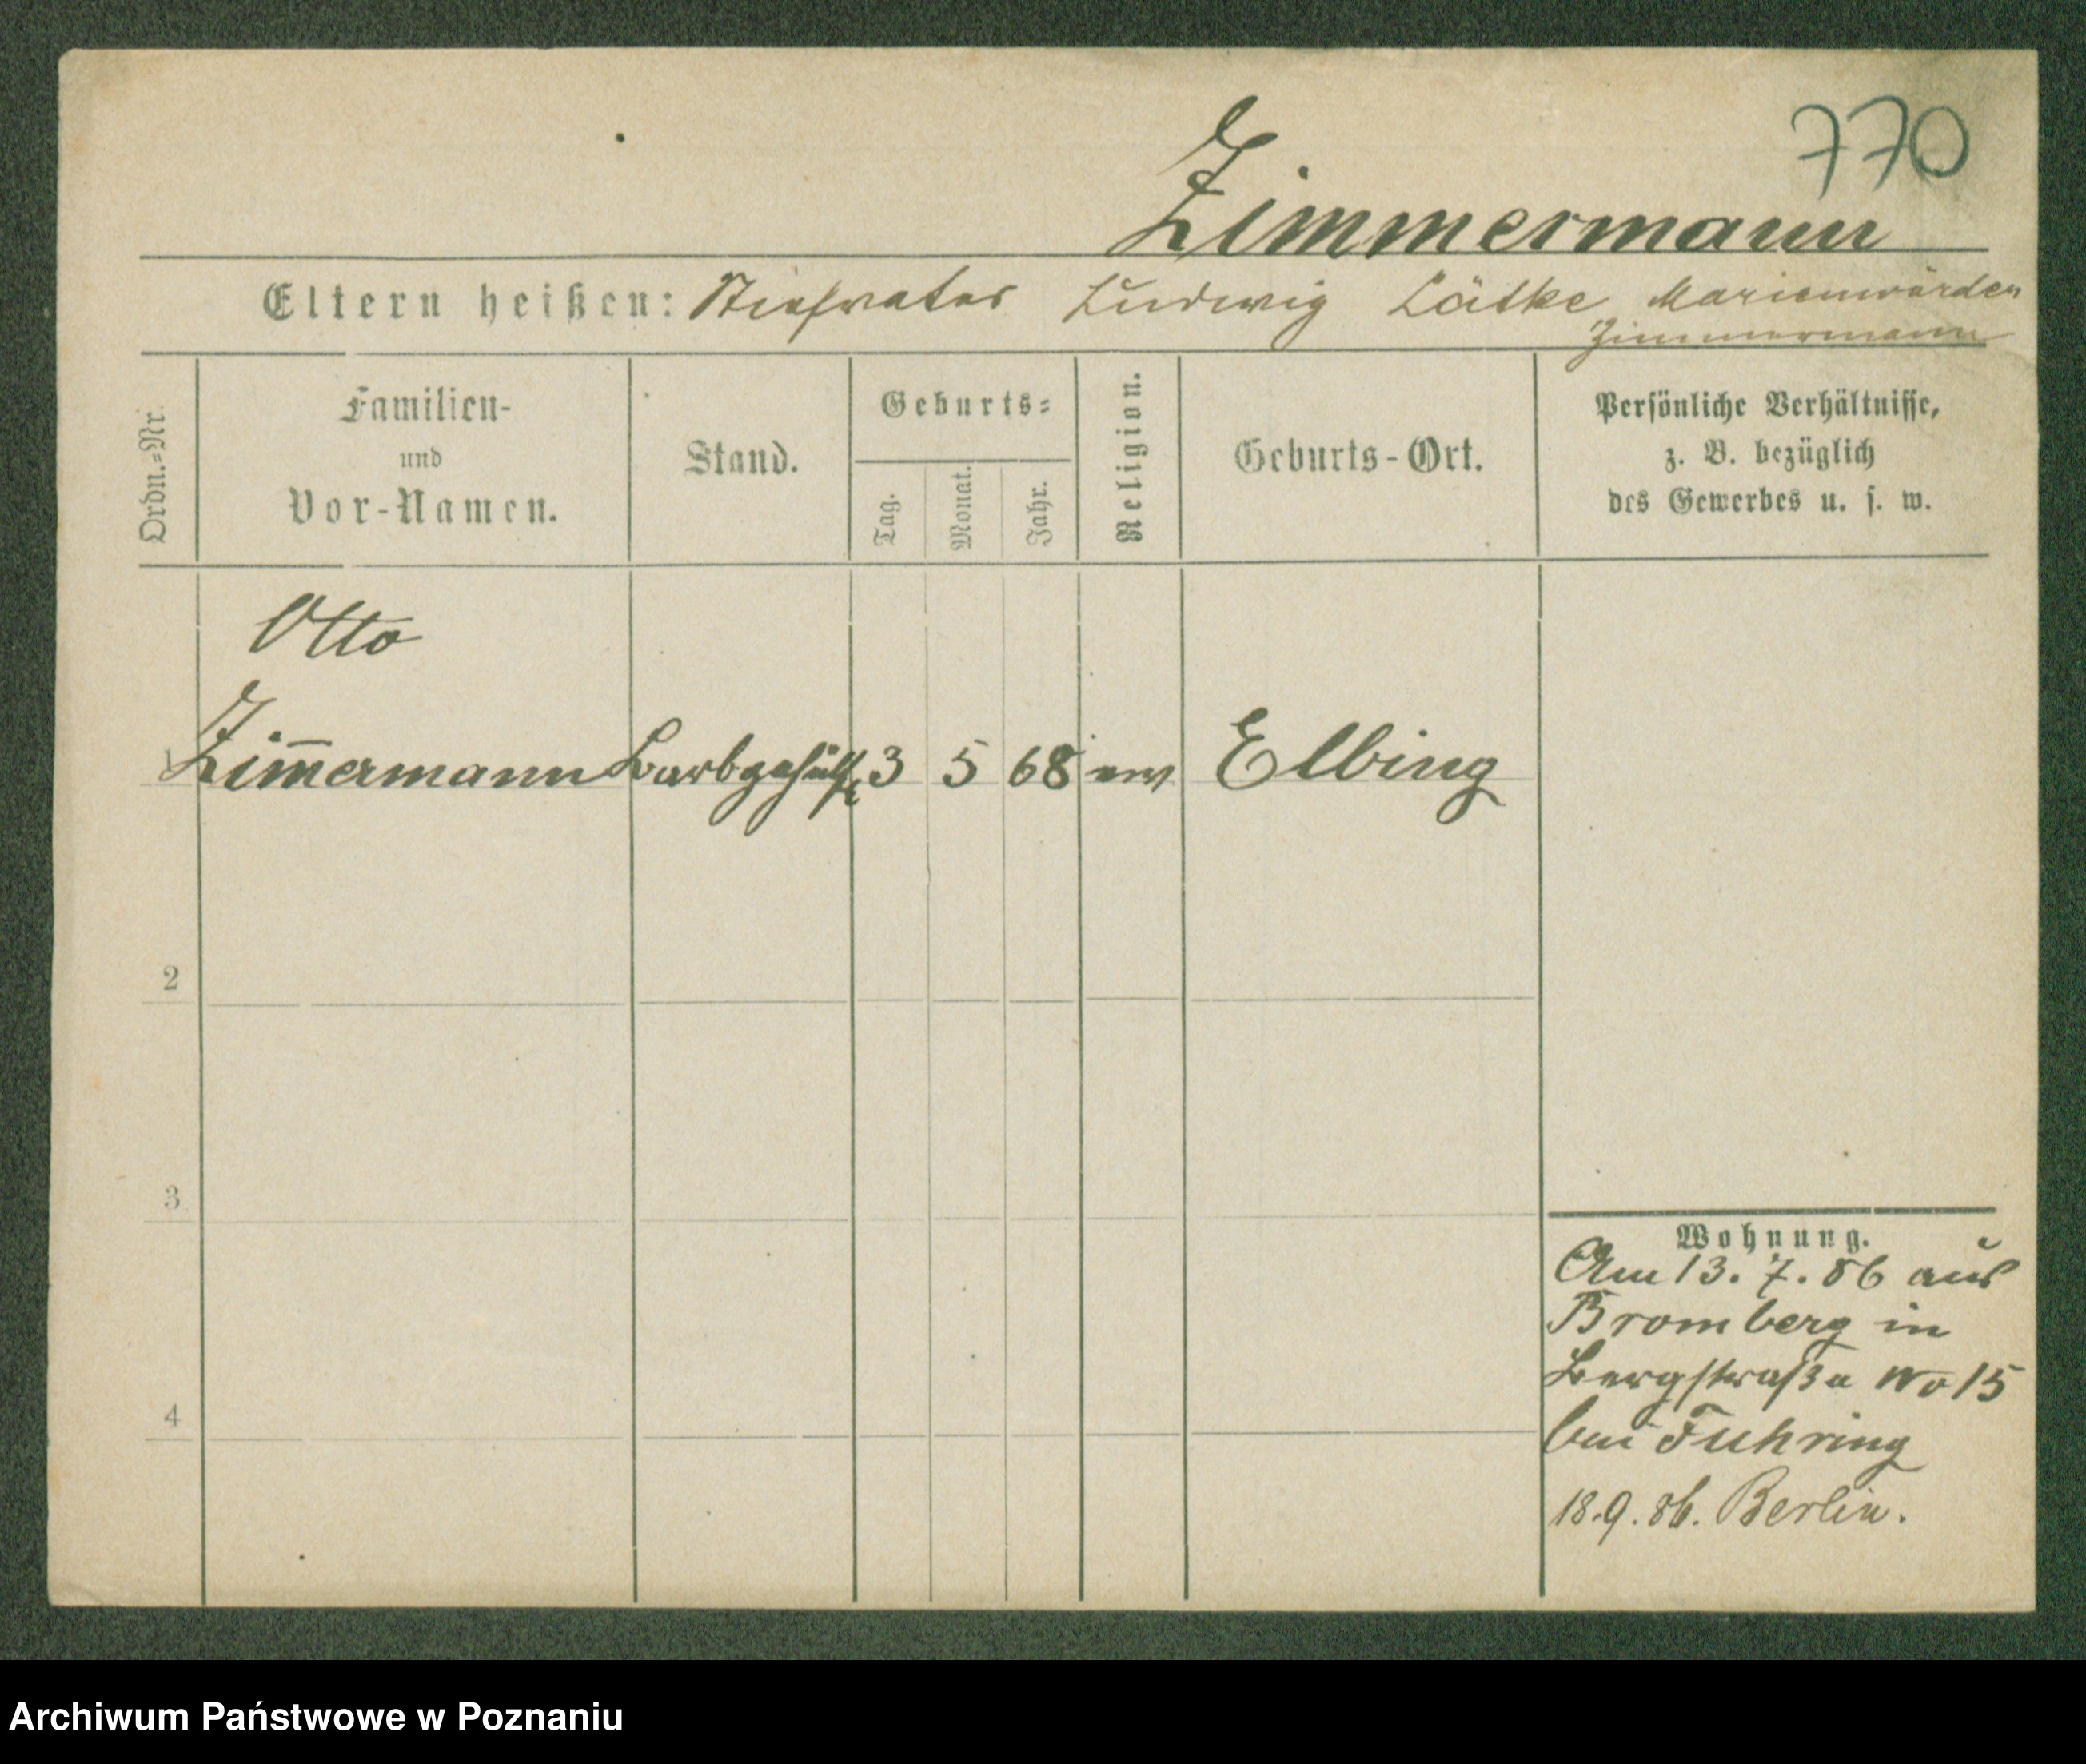 770
Zimmermann
Eltern heißen: Stiefvater Ludwig Lätke Marienwärder
Zimmermann
Ordn.=Nr.
Familien-
und
Vor-Namen.
Stand.
Geburts=
Tag.
Monat.
Jahr.
Religion.
Geburts-Ort.
Persönliche Verhältnisse,
z. B. bezüglich
des Gewerbes u. s. w.
Otto
Zim̄ermann Barbgehülfe 3 5 68 ev Elbing
2
3
4
Wohnung.
Am 13. 7. 86 aus
Bromberg in
Bergstraße No 15
bei Fuhring
18.9.86. Berlin.
Archiwum Państwowe w Poznaniu